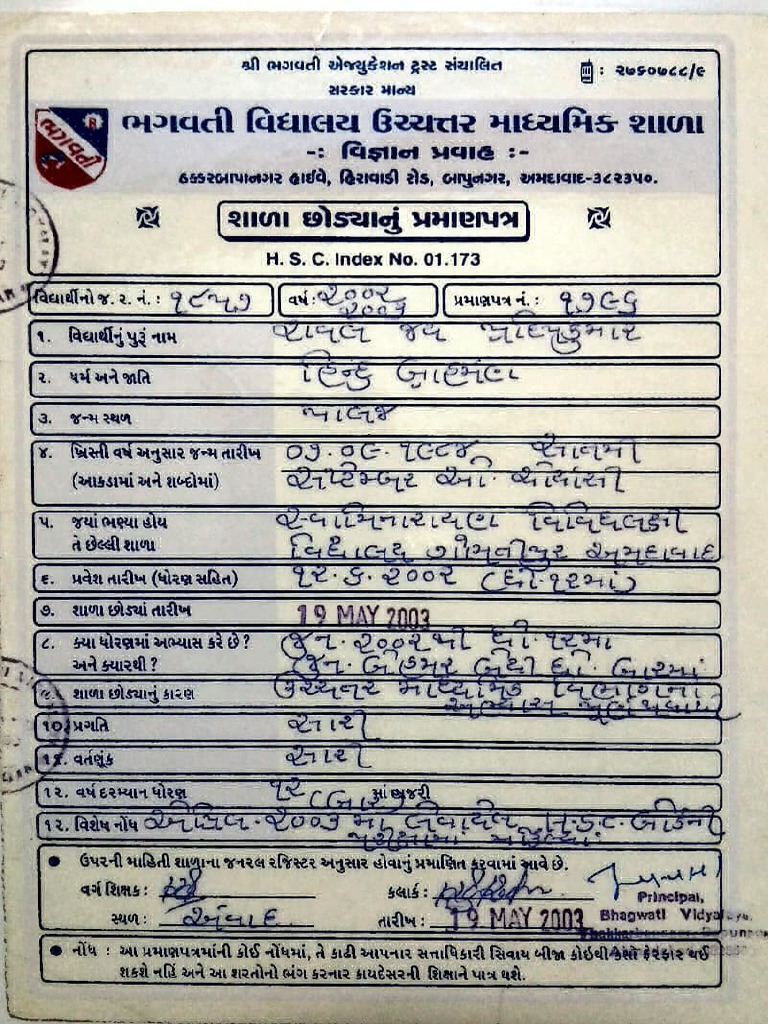 શ્રી ભગવતી એજ્યુકેશન ટ્રસ્ટ સંચાલિત
: ૨૭૬૦૭૮૮/૯
સરકાર માન્ય
ભગવતી
ભગવતી વિદ્યાલય ઉચ્ચત્તર માધ્યમિક શાળા
-: વિજ્ઞાન પ્રવાહ :-
ઠક્કરબાપાનગર હાઈવે, હિરાવાડી રોડ, બાપુનગર, અમદાવાદ-૩૮૨૩૫૦.
શાળા છોડ્યાનું પ્રમાણપત્ર
H. S. C. Index No. 01.173
વિદ્યાર્થીનો જ. ર. નં. : ૧૮૫૭ વર્ષ : ૨૦૦૨ ૨૦૦૩ પ્રમાણપત્ર નં. : ૧૭૯૬
૧. વિદ્યાર્થીનું પુરૂં નામ રાવલ જય
૨. ધર્મ અને જાતિ હિન્દુ બ્રાહ્મણ
૩. જન્મ સ્થળ પાલજ
૪. ખ્રિસ્તી વર્ષ અનુસાર જન્મ તારીખ ૦૭.૦૯.૧૯૮૪ સાતમી
(આકડામાં અને શબ્દોમાં) સપ્ટેમ્બર ઓ. ચોર્યાસી
૫. જયાં ભણ્યા હોય સ્વામિનારાયણ વિવિધલક્ષી
તે છેલ્લી શાળા વિદ્યાલય ગોમતીપુર અમદાવાદ
૬. પ્રવેશ તારીખ (ધોરણ સહિત) ૧૨.૬.૨૦૦૨ (ધો.૧૨માં)
૭. શાળા છોડ્યાં તારીખ 19 MAY 2003
૮. કયા ધોરણમાં અભ્યાસ કરે છે? જુન.૨૦૦૨થી ધો.૧૨મા
અને કયારથી? (જુન. બે હજાર બેથી ધો. બારમાં
૯. શાળા છોડ્યાનું કારણ ઉચ્ચતર માધ્યમિક વિભાગનો
અભ્યાસ પૂર્ણ થવાથી
૧૦. પ્રગતિ સારી
૧૧. વર્તણૂંક સારી
૧૨. વર્ષ દરમ્યાન ધોરણ ૧૨ (બાર) માં હાજરી
૧૨. વિશેષ નોંધ એપ્રિલ-૨૦૦૩ માં લેવાયેલ
પરીક્ષામાં
● ઉપરની માહિતી શાળાના જનરલ રજિસ્ટર અનુસાર હોવાનું પ્રમાણિત કરવામાં આવે છે.
વર્ગ શિક્ષક : કલાર્ક :
Principal,
સ્થળ : અ'વાદ તારીખ : 19 MAY 2003 Bhagwati Vidyalaya,
● નોંધ : આ પ્રમાણપત્રમાંની કોઈ નોંધમાં, તે કાઢી આપનાર સત્તાધિકારી સિવાય બીજા કોઈથી કશો ફેરફાર થઈ
શકશે નહિ અને આ શરતોનો ભંગ કરનાર કાયદેસરની શિક્ષાને પાત્ર થશે.